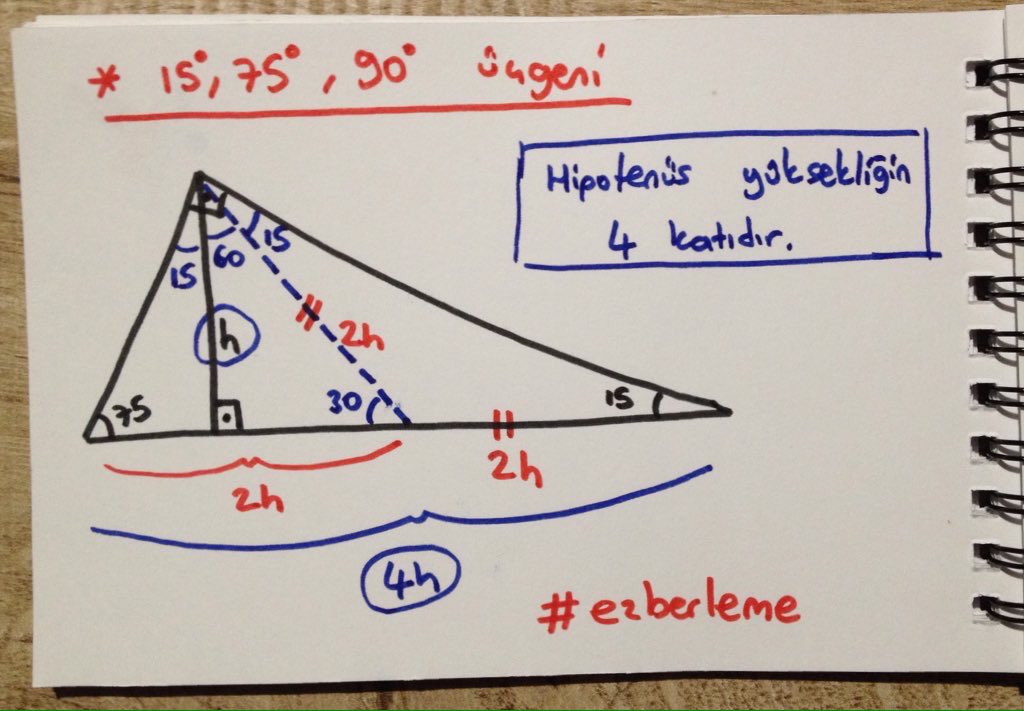 * 15°, 75°, 90° üçgeni
Hipotenüs yüksekliğin
4 katıdır.
15 60 15
h
2h
75
30
15
2h
2h
4h
#ezberleme